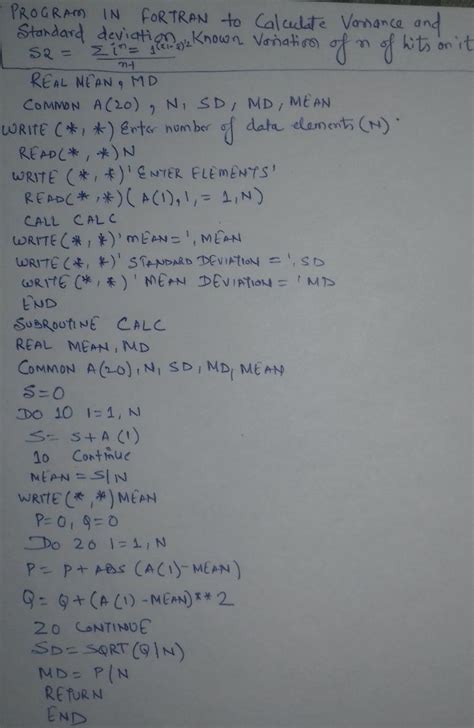 PROGRAM IN FORTRAN to Calculate Variance and
Standard deviation, Known Variation of n of hits on it
S2 = Σi^n = 1(xi-x̄)2
n-1
REAL MEAN, MD
COMMON A(20), N, SD, MD, MEAN
WRITE (*, *) Enter number of data elements (N)
READ(*, *)N
WRITE (*, *)'ENTER ELEMENTS'
READ(*, *)(A(1),1,=1,N)
CALL CALC
WRITE(*, *)'MEAN=', MEAN
WRITE(*, *)' STANDARD DEVIATION =', SD
WRITE(*, *)' MEAN DEVIATION= 'MD
END
SUBROUTINE CALC
REAL MEAN, MD
COMMON A(20), N, SD, MD, MEAN
S=0
DO 10 1=1, N
S= S+A (1)
10 Continue
MEAN = S/N
WRITE(*, *)MEAN
P=0, Q=0
DO 20 1=1, N
P= P+ABS (A(1)-MEAN)
Q= Q+(A(1)-MEAN)**2
20 CONTINUE
SD=SQRT(Q/N)
MD= P/N
RETURN
END